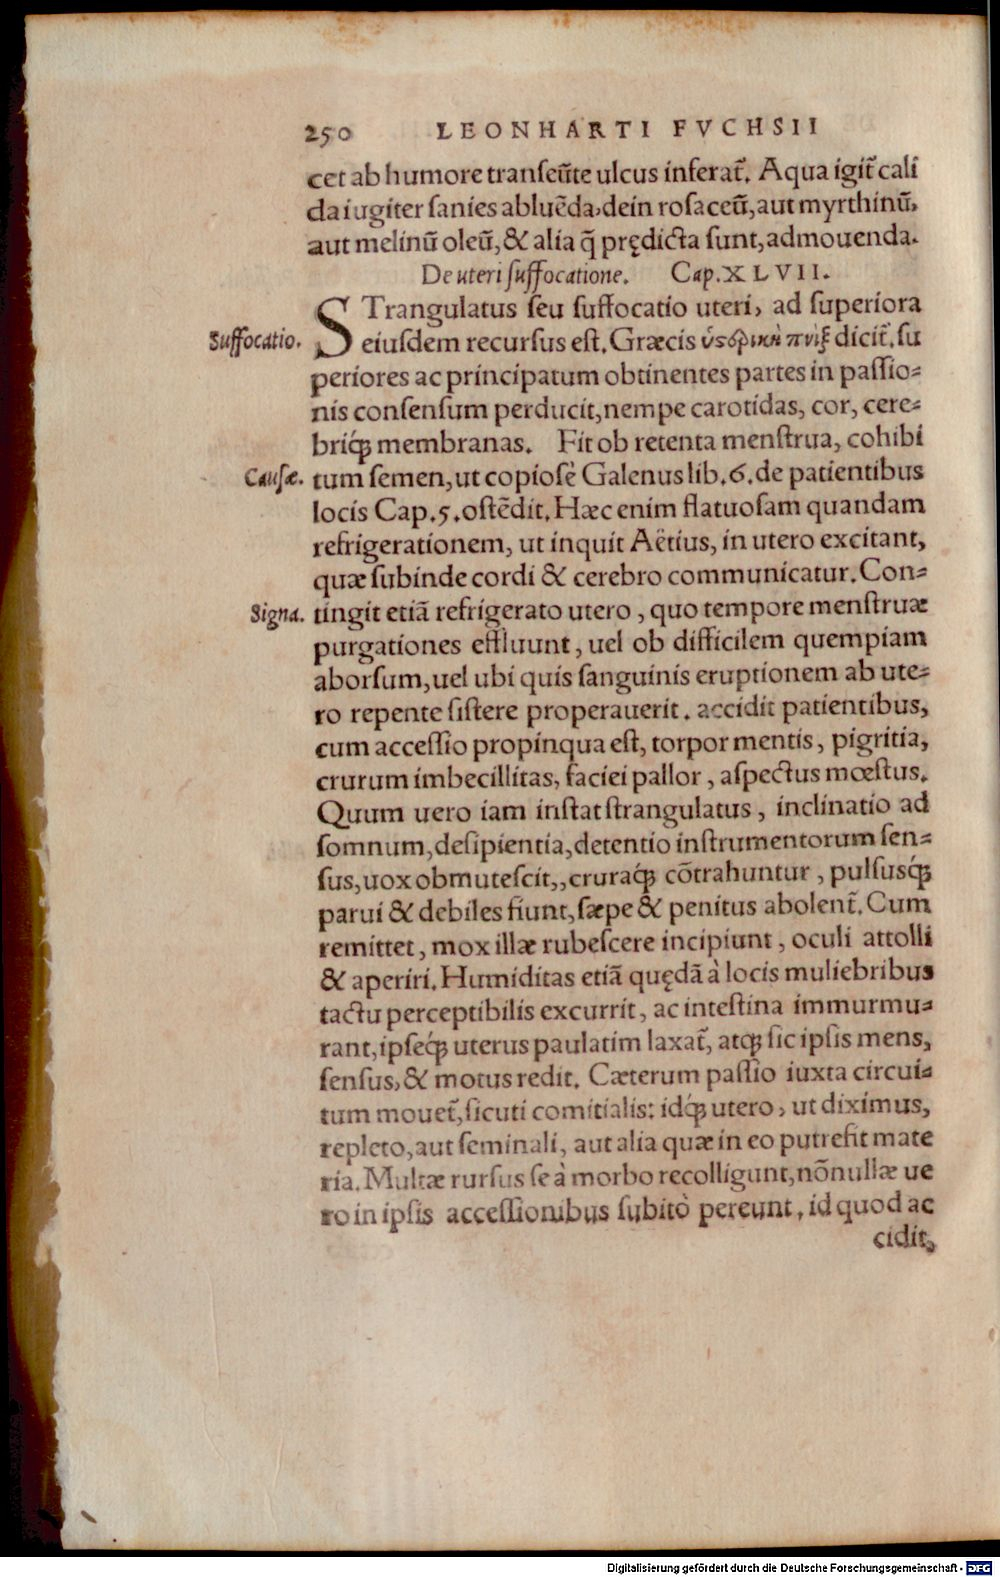 250 LEONHARTI FVCHSII
cet ab humore transeũte ulcus inferat̃. Aqua igit̃ cali
da iugiter sanies abluẽda, dein rosaceũ, aut myrthinũ,
aut melinũ oleũ, & alia q̃ prędicta sunt, admouenda.
De uteri suffocatione. Cap. XLVII.
STrangulatus seu suffocatio uteri, ad superiora
Suffocatio. eiusdem recursus est. Græcis ὑστερικὴ πνὶξ dicit̃. su
periores ac principatum obtinentes partes in passio-
nis consensum perducit, nempe carotidas, cor, cere-
briq́ꝫ membranas. Fit ob retenta menstrua, cohibi
Causæ. tum semen, ut copiosè Galenus lib. 6. de patientibus
locis Cap. 5. ostẽdit. Hæc enim flatuosam quandam
refrigerationem, ut inquit Aëtius, in utero excitant,
quæ subinde cordi & cerebro communicatur. Con-
Signa. tingit etiã refrigerato utero, quo tempore menstruæ
purgationes effluunt, uel ob difficilem quempiam
aborsum, uel ubi quis sanguinis eruptionem ab ute-
ro repente sistere properauerit. accidit patientibus,
cum accessio propinqua est, torpor mentis, pigritia,
crurum imbecillitas, faciei pallor, aspectus mœstus.
Quum uero iam instat strangulatus, inclinatio ad
somnum, desipientia, detentio instrumentorum sen-
sus, uox obmutescit,, cruraq́ꝫ cõtrahuntur, pulsusq́ꝫ
parui & debiles fiunt, sæpe & penitus abolent̃. Cum
remittet, mox illæ rubescere incipiunt, oculi attolli
& aperiri. Humiditas etiã quędã à locis muliebribus
tactu perceptibilis excurrit, ac intestina immurmu-
rant, ipseq́ꝫ uterus paulatim laxat̃, atqꝫ sic ipsis mens,
sensus, & motus redit. Cæterum passio iuxta circui-
tum mouet̃, sicuti comitialis: idq́ꝫ utero, ut diximus,
repleto, aut seminali, aut alia quæ in eo putrefit mate
ria. Multæ rursus se à morbo recolligunt, nõnullæ ue
ro in ipsis accessionibus subitò pereunt, id quod ac
cidit,
Digitalisierung gefördert durch die Deutsche Forschungsgemeinschaft - DFG